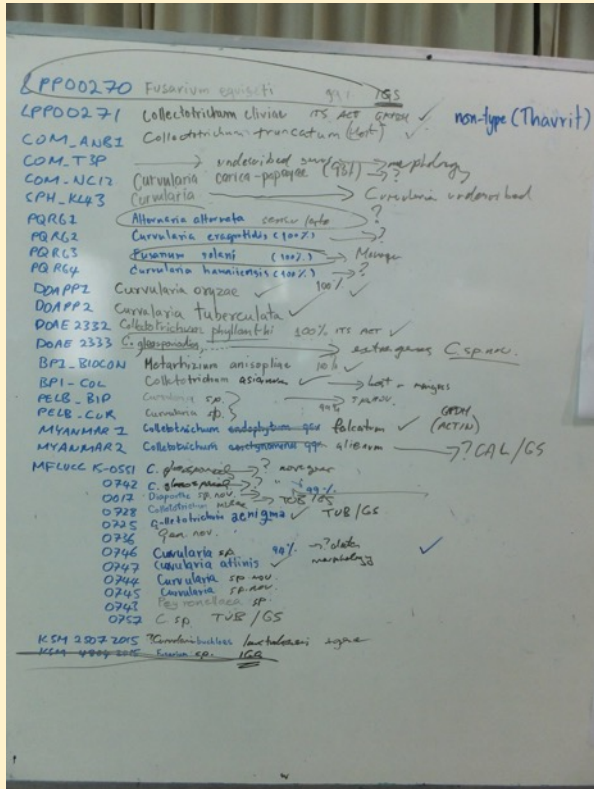 LPP00270 Fusarium equiseti 99% IGS
LPP00271 Colletotrichum cliviae ITS ACT GAPDH ✓ non-type (Thavrit)
COM_ANB1 Collectotrichum truncatum (host) ✓
COM_T3P → undescribed → morphology
COM-NC12 Curvularia carica-papayae (93%) → ?
SPH_KL43 Curvularia → Curvularia undescribed
PQRG1 Alternaria alternata sensu lato ?
PQRG2 Curvularia eragrotidis (100%) → ?
PQRG3 Fusarium solani (100%) →
PQRG4 Curvularia hawaiiensis (100%) → ?
DOAPP1 Curvularia oryzae ✓ 100% ✓
DOAPP2 Curvularia tuberculata ✓ ✓
DOAE 2332 Colletotrichum phyllanthi 100% ITS ACT ✓
DOAE 2333 C. gloeosporioides → C sp. nov.
BPI_BIOCON Metarhizium anisopliae ✓
BPI-COL Colletotrichum asianum ✓ → host
PELB_BIP Curvularia sp. →
PELB_CUR Curvularia sp. 99%
MYANMAR1 Colletotrichum falcatum ✓ GAPDH (ACTIN)
MYANMAR2 Colletotrichum → ? CAL/GS
MFLUCC 15-0551 C. → ?
0742 C. → ? 99%
0617 Diaporthe sp. nov. → TUB/GS
0728 Colletotrichum
0725 Colletotrichum aenigma ✓ TUB/GS
0736 gen. nov.
0746 Curvularia sp. 90% → ? ✓
0747 Curvularia affinis ✓ morphology
0744 Curvularia sp. nov.
0745 Curvularia sp. nov.
0743 Peyronellaea sp.
0752 C. sp. TUB/GS
KSM 2507 2015 ? Curvularia
KSM 2015 Fusarium sp. IGS